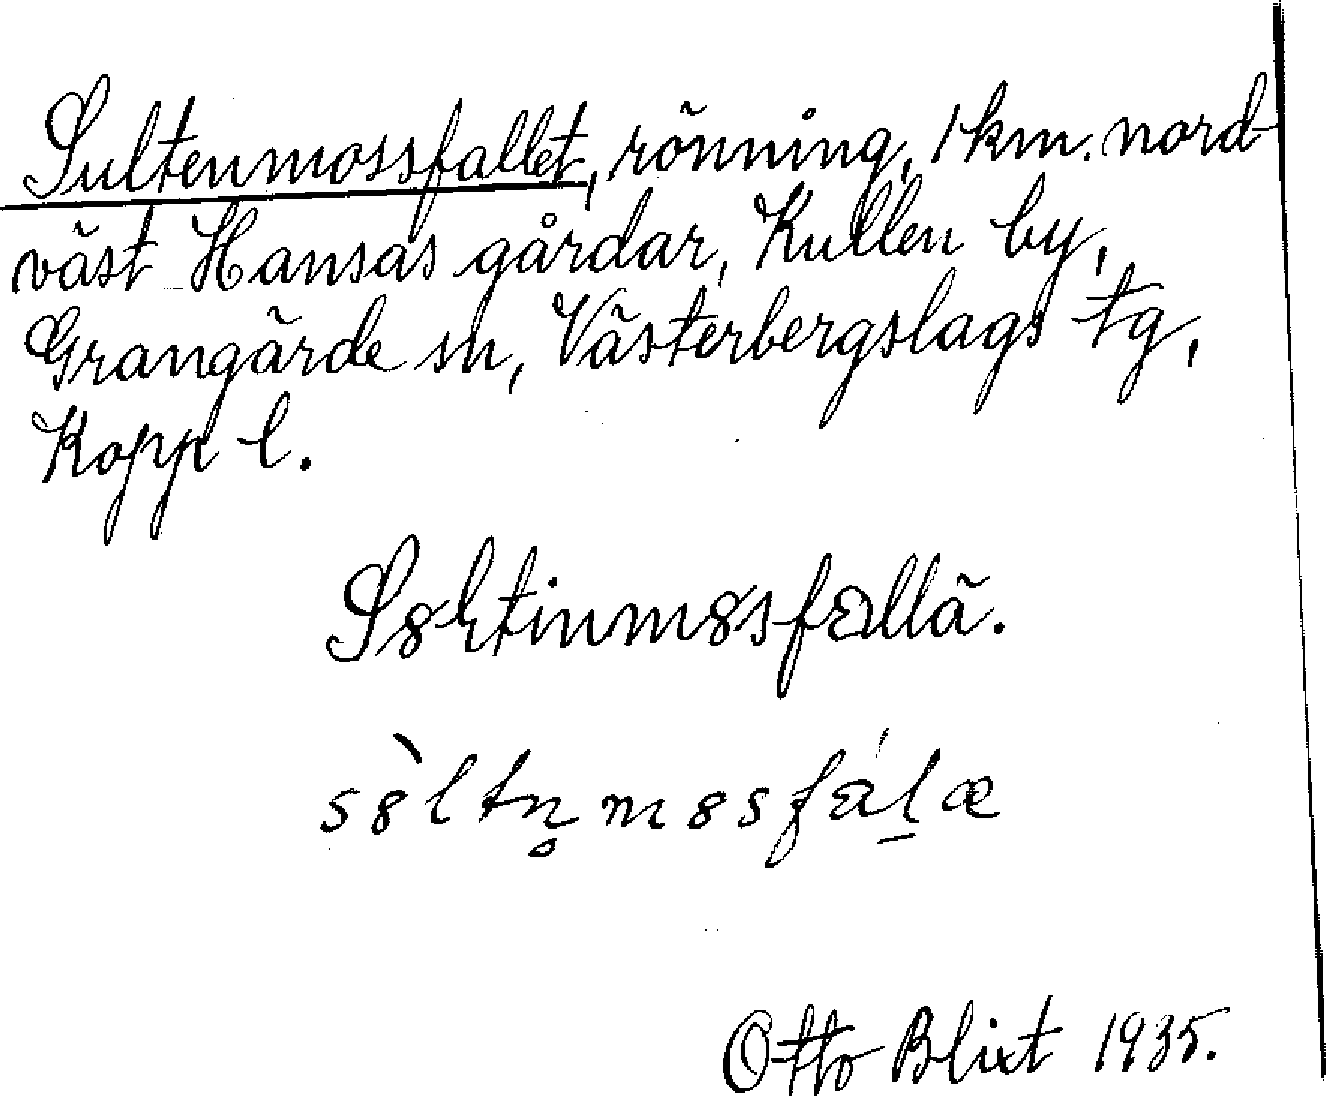 Sultenmossfallet, rönning, 1 km. nord
väst Hansas gårdar, Kullen by,
Grangärde sn, Västerbergslags tg,
Kopp l.
S8ltinm8sfallä.
s8̀ltn̥m8sfál̠æ
Otto Blixt 1935.